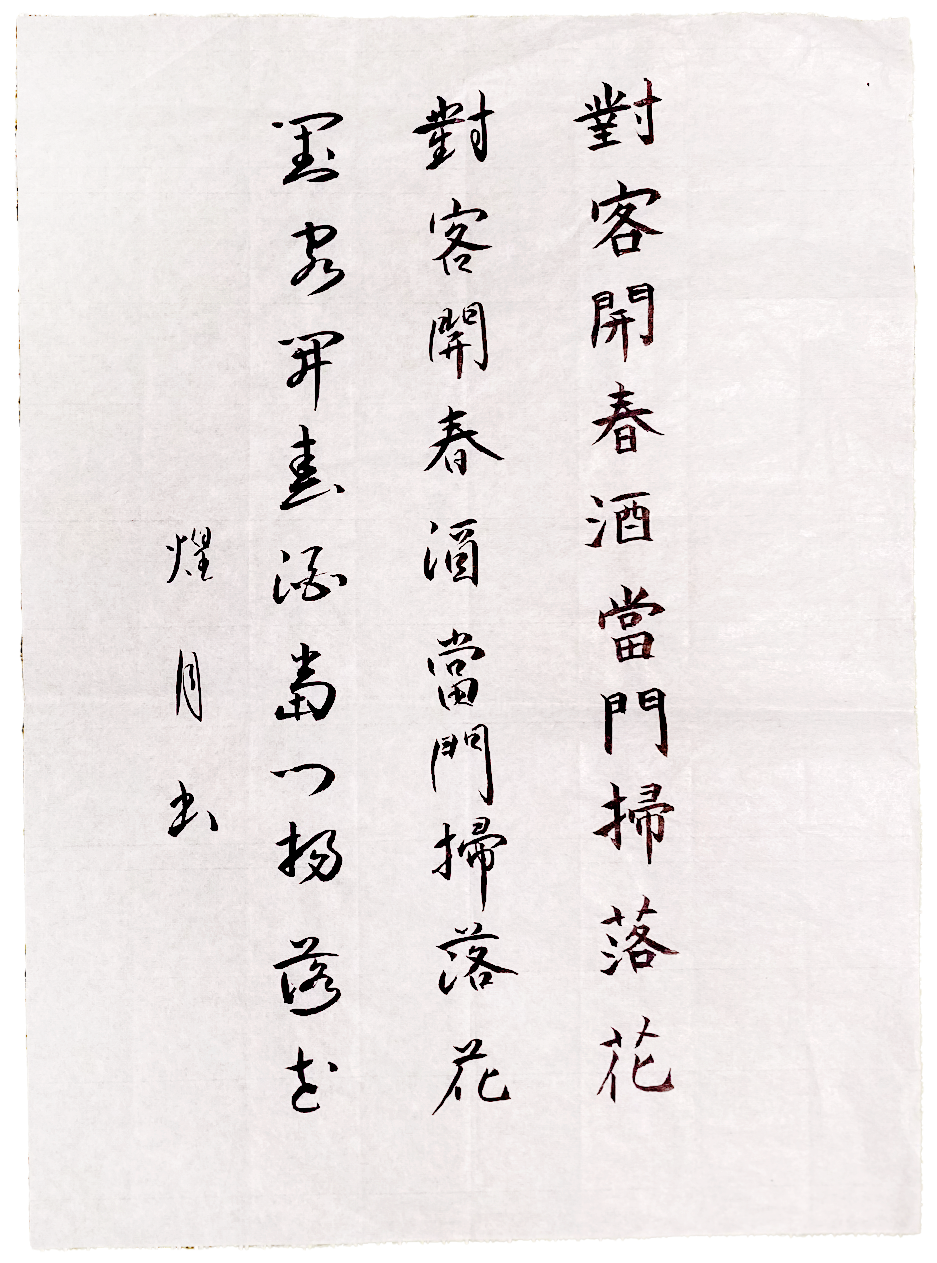 對客開春酒當門掃落花
對客開春酒當門掃落花
對客開春酒當門掃落花
燿月书